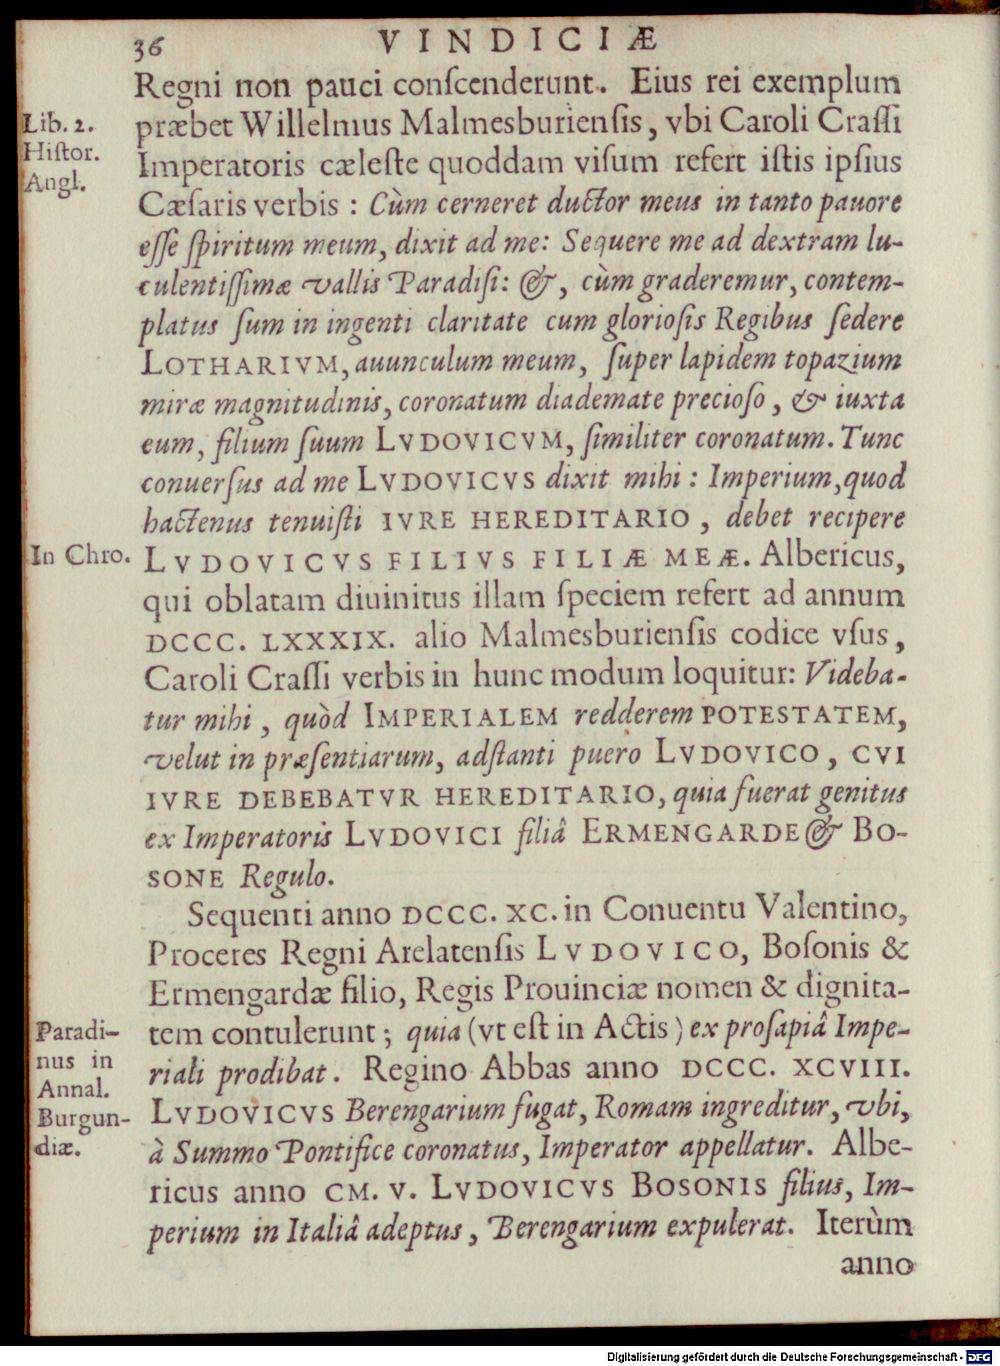 36 VINDICIÆ
Regni non pauci conſcenderunt. Eius rei exemplum
Lib. 2.
Hiſtor.
Angl.
præbet Willelmus Malmesburienſis, vbi Caroli Craſſi
Imperatoris cæleſte quoddam viſum refert iſtis ipſius
Cæſaris verbis : Cùm cerneret ductor meus in tanto pauore
eſſe ſpiritum meum, dixit ad me: Sequere me ad dextram lu-
culentiſſimæ vallis Paradiſi: &, cùm graderemur, contem-
platus ſum in ingenti claritate cum glorioſis Regibus ſedere
LOTHARIVM, auunculum meum, ſuper lapidem topazium
miræ magnitudinis, coronatum diademate precioſo, & iuxta
eum, filium ſuum LVDOVICVM, ſimiliter coronatum. Tunc
conuerſus ad me LVDOVICVS dixit mihi : Imperium, quod
hactenus tenuiſti IVRE HEREDITARIO, debet recipere
In Chro.
LVDOVICVS FILIVS FILIÆ MEÆ. Albericus,
qui oblatam diuinitus illam ſpeciem refert ad annum
DCCC. LXXXIX. alio Malmesburienſis codice vſus,
Caroli Craſſi verbis in hunc modum loquitur: Videba-
tur mihi, quòd IMPERIALEM redderem POTESTATEM,
velut in præſentiarum, adſtanti puero LVDOVICO, CVI
IVRE DEBEBATVR HEREDITARIO, quia fuerat genitus
ex Imperatoris LVDOVICI filiâ ERMENGARDE & BO-
SONE Regulo.
Sequenti anno DCCC. XC. in Conuentu Valentino,
Proceres Regni Arelatenſis LVDOVICO, Boſonis &
Ermengardæ filio, Regis Prouinciæ nomen & dignita-
Paradi-
nus in
Annal.
Burgun-
diæ.
tem contulerunt ; quia (vt eſt in Actis) ex proſapiâ Impe-
riali prodibat. Regino Abbas anno DCCC. XCVIII.
LVDOVICVS Berengarium fugat, Romam ingreditur, vbi,
à Summo Pontifice coronatus, Imperator appellatur. Albe-
ricus anno CM. V. LVDOVICVS BOSONIS filius, Im-
perium in Italiâ adeptus, Berengarium expulerat. Iterùm
anno
Digitalisierung gefördert durch die Deutsche Forschungsgemeinschaft - DFG